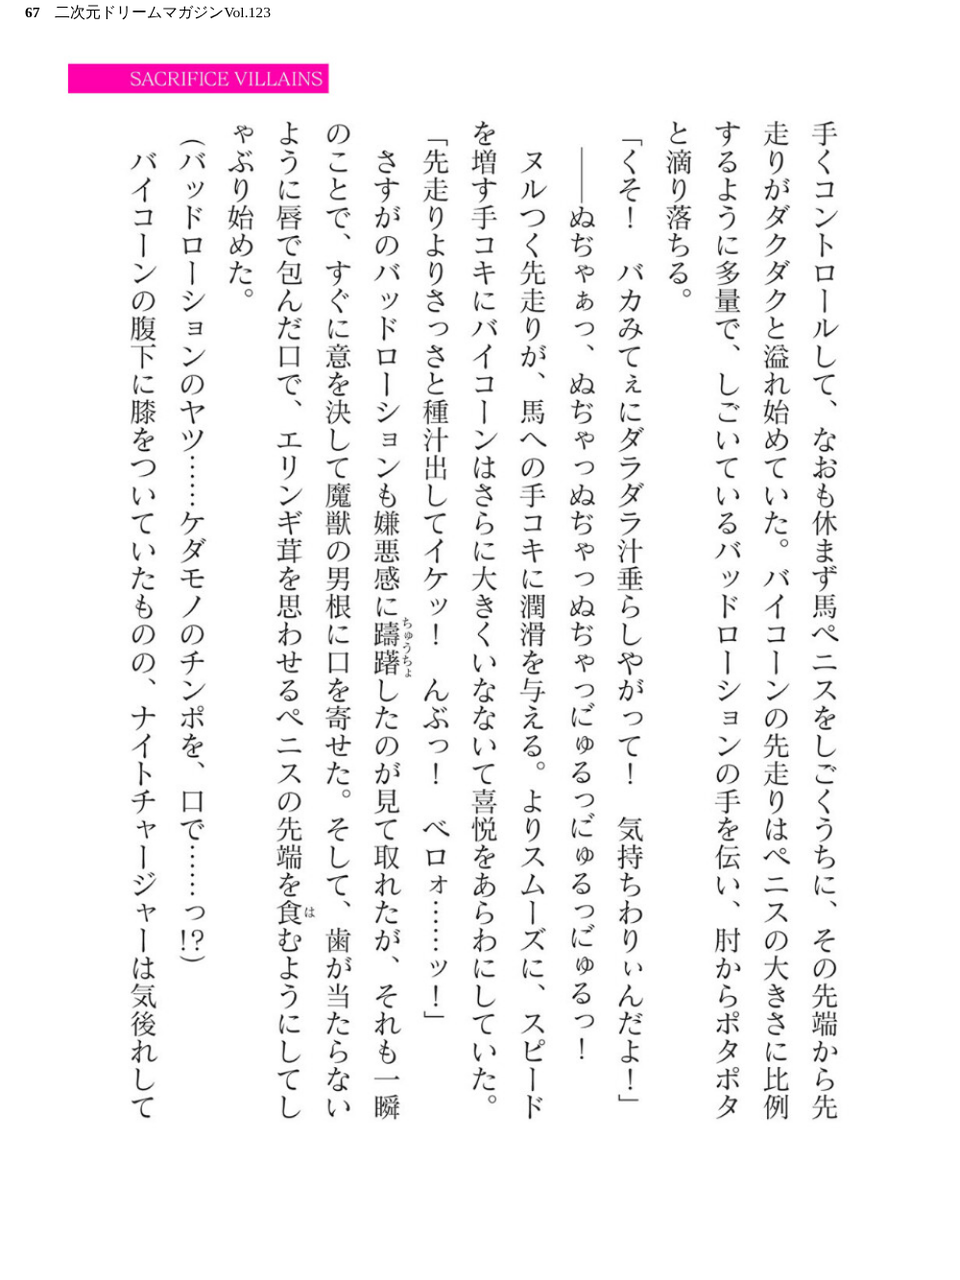 67 二次元ドリームマガジンVol.123
SACRIFICE VILLAINS
手くコントロールして、なおも休まず馬ペニスをしごくうちに、その先端から先
走りがダクダクと溢れ始めていた。バイコーンの先走りはペニスの大きさに比例
するように多量で、しごいているバッドローションの手を伝い、肘からポタポタ
と滴り落ちる。
「くそ！　バカみてぇにダラダラ汁垂らしやがって！　気持ちわりぃんだよ！」
――ぬぢゃぁっ、ぬぢゃっぬぢゃっぬぢゃっにゅるっにゅるっにゅるっ！
ヌルつく先走りが、馬への手コキに潤滑を与える。よりスムーズに、スピード
を増す手コキにバイコーンはさらに大きくいなないて喜悦をあらわにしていた。
「先走りよりさっさと種汁出してイケッ！　んぶっ！　ベロォ……ッ！」
さすがのバッドローションも嫌悪感に躊躇ちゅうちょしたのが見て取れたが、それも一瞬
のことで、すぐに意を決して魔獣の男根に口を寄せた。そして、歯が当たらない
ように唇で包んだ口で、エリンギ茸を思わせるペニスの先端を食はむようにしてし
ゃぶり始めた。
（バッドローションのヤツ……ケダモノのチンポを、口で……っ!?）
バイコーンの腹下に膝をついていたものの、ナイトチャージャーは気後れして